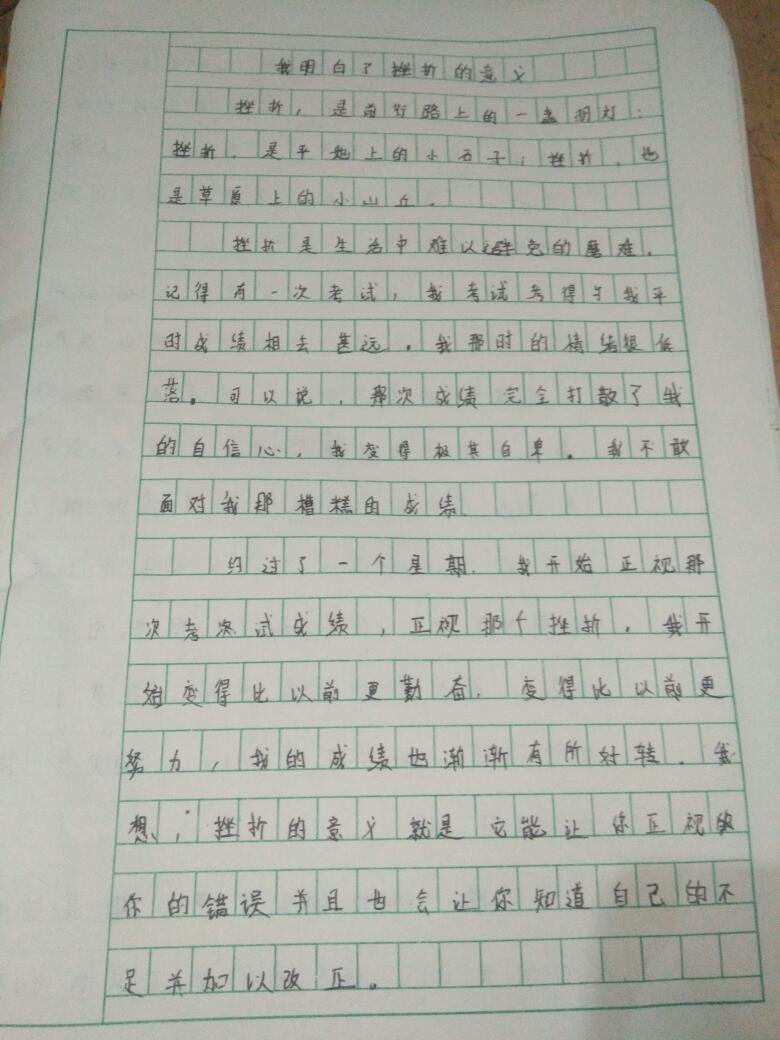 我明白了挫折的意义
挫折，是前行路上的一盏明灯；
挫折，是平地上的小石子；挫折，也
是草原上的小山丘。
挫折是生活中难以避免的磨难。
记得有一次考试，我考试考得与我平
时成绩相去甚远。我那时的情绪很低
落。可以说，那次成绩完全打散了我
的自信心，我变得极其自卑。我不敢
面对我那糟糕的成绩
约过了一个星期，我开始正视那
次考次试成绩，正视那个挫折。我开
始变得比以前更勤奋，变得比以前更
努力，我的成绩也渐渐有所好转。我
想，挫折的意义就是它能让你正视
你的错误并且也会让你知道自己的不
足并加以改正。